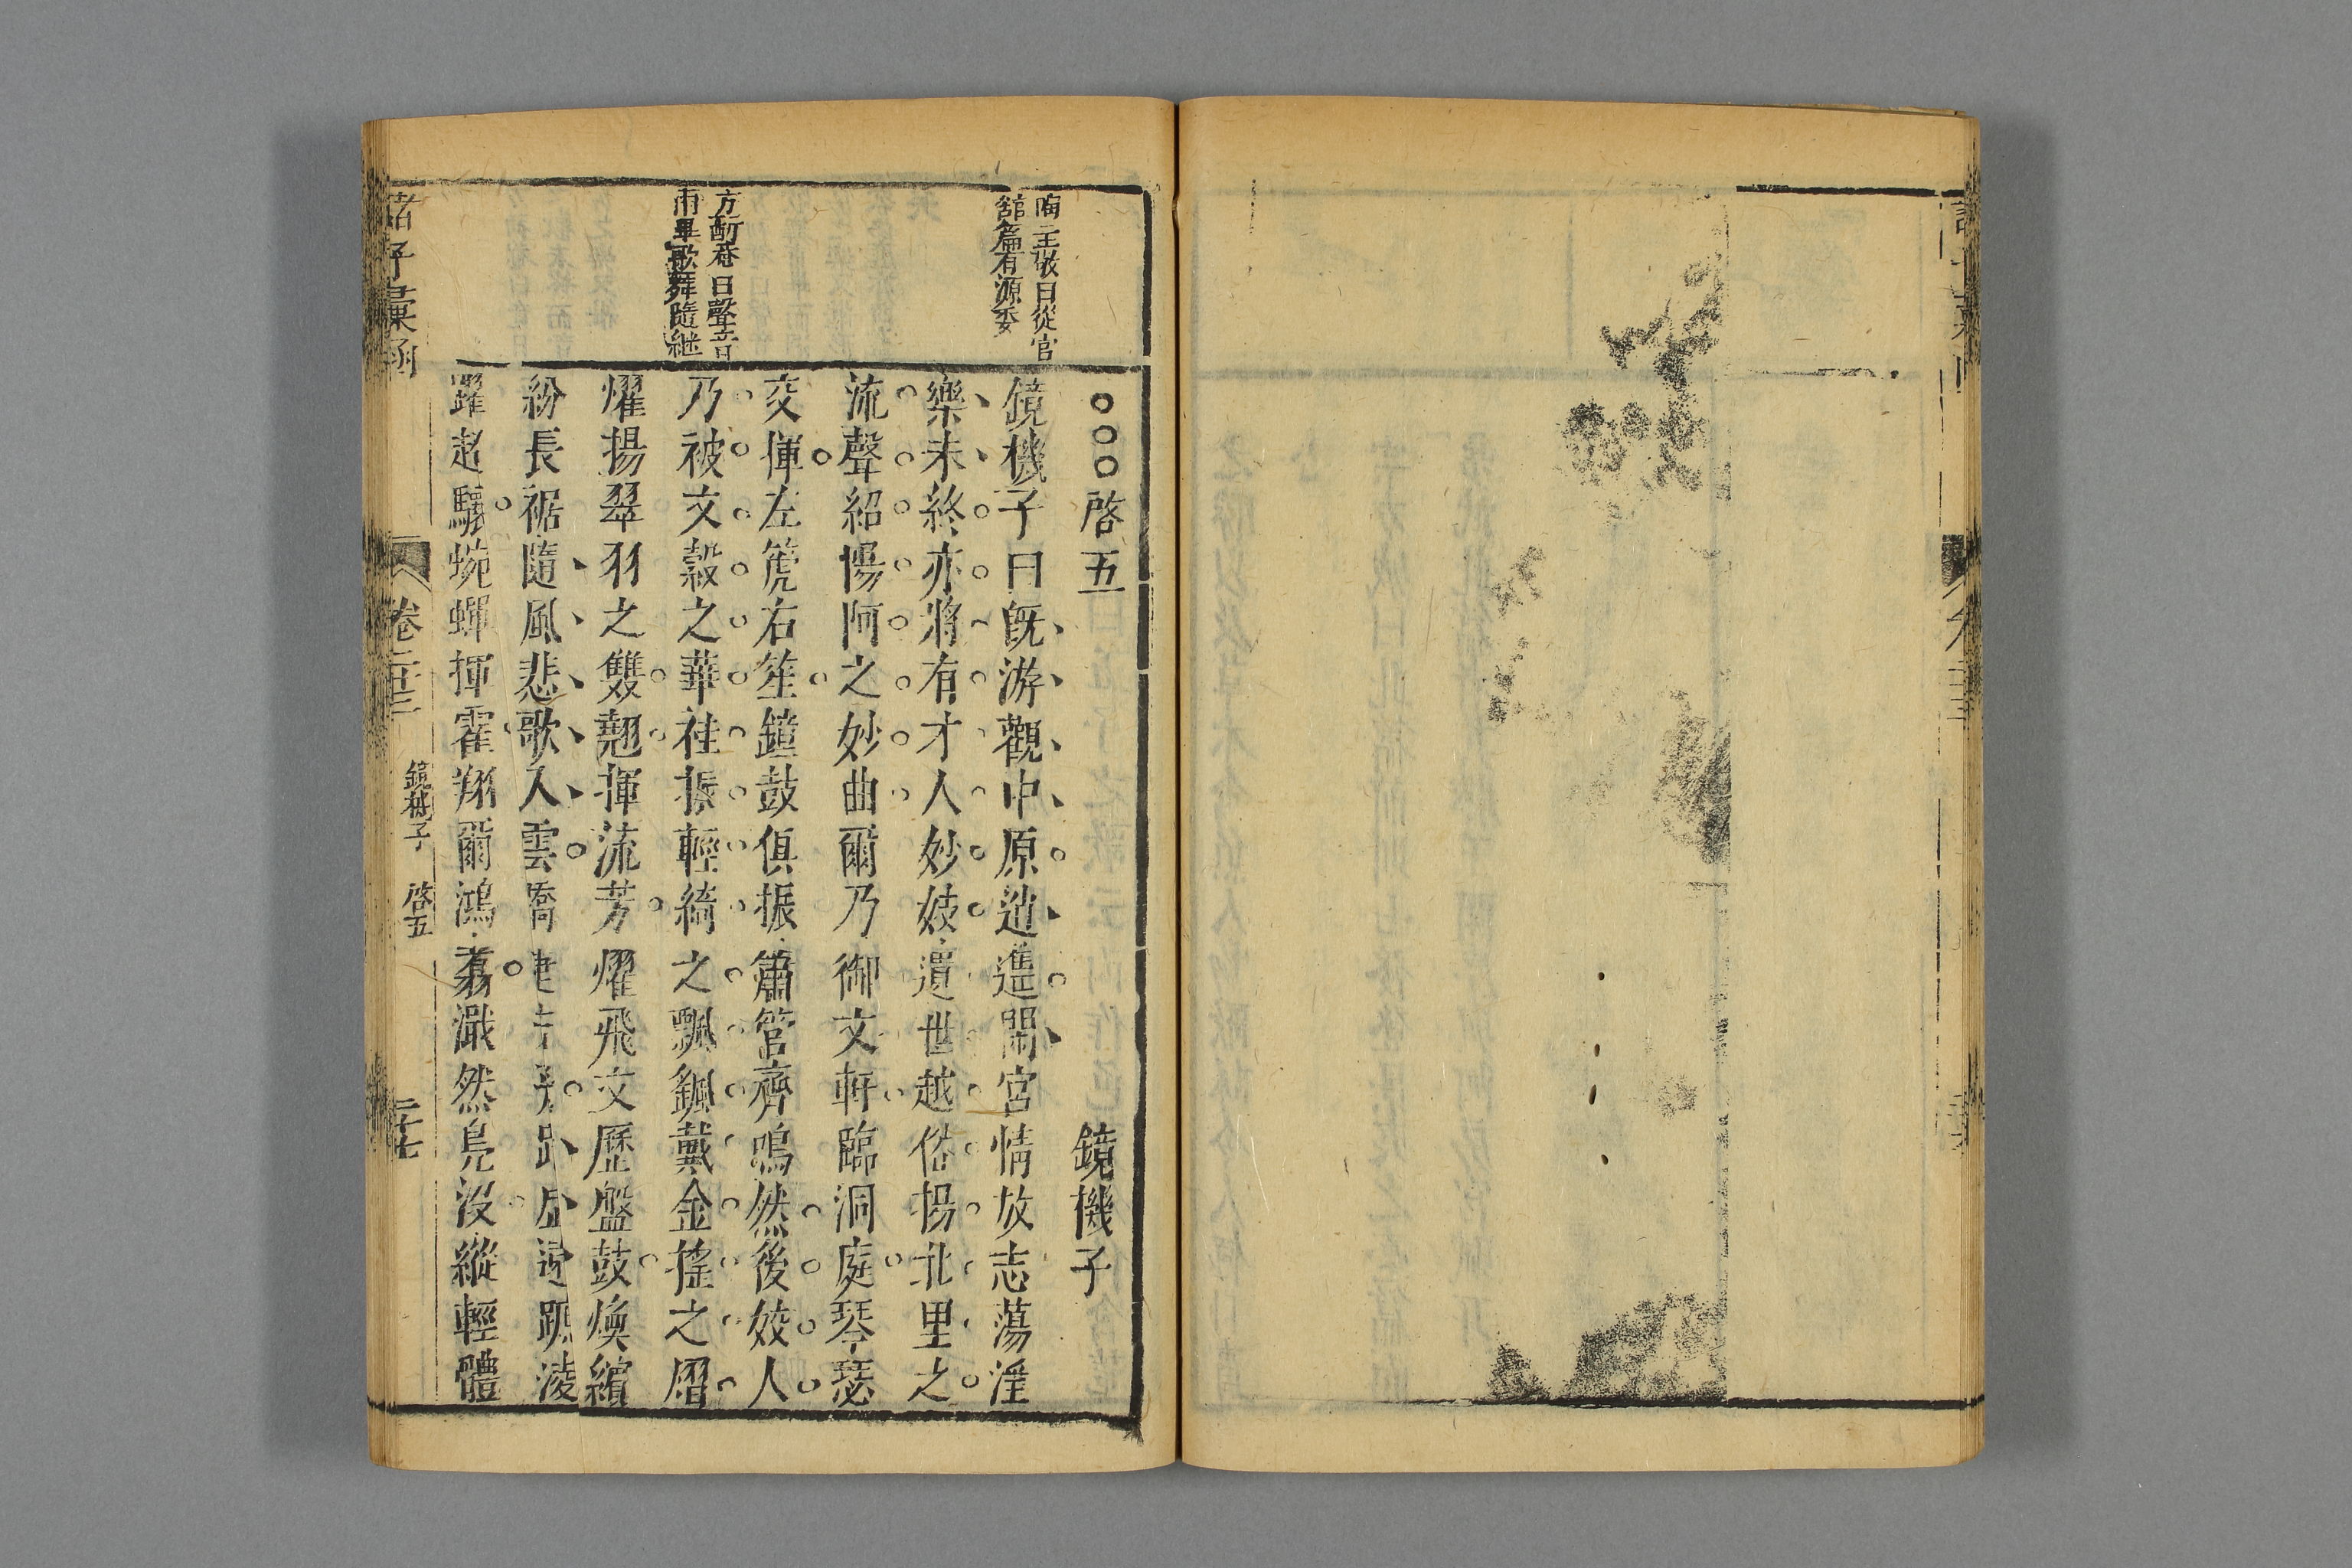 啓五
鏡機子
鏡機子曰旣游觀中原逍遙閒宮情放志蕩淫
樂未終亦將有才人妙妓遺世越俗揚北里之
流聲紹陽阿之妙曲爾乃御文軒臨洞庭琴瑟
交揮左篪右笙鐘鼓俱振簫管齊鳴然後姣人
乃被文縠之華袿振輕綺之飄颻戴金搖之熠
燿揚翠羽之雙翹揮流芳燿飛文歷盤鼓煥繽
紛長裾隨風悲歌入雲
虛
躡凌
躍超驤蜿蟬揮霍翔爾鴻翥濈然鳧沒縱輕體
王敬曰從官
舘篇有源委
方蛟峯曰聲音
甫畢歌舞隨継
諸子彙函
卷
鏡機子
啓五
二十七